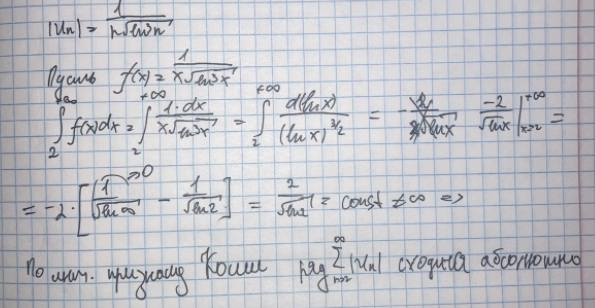 |Uₙ| = 1/(n√(ln³n))
Пусть f(x) = 1/(x√(ln³x))
∫₂^{+∞} f(x)dx = ∫₂^{+∞} 1·dx/(x√(ln³x)) = ∫₂^{+∞} d(lnx)/(lnx)^{3/2} = -2/√lnx |_{x=2}^{+∞} =
= -2·[1/√ln∞ →0 - 1/√ln2] = 2/√ln2 = const ≠ ∞ =>
По инт. признаку Коши ряд ∑_{n=2}^{∞} |Uₙ| сходится абсолютно